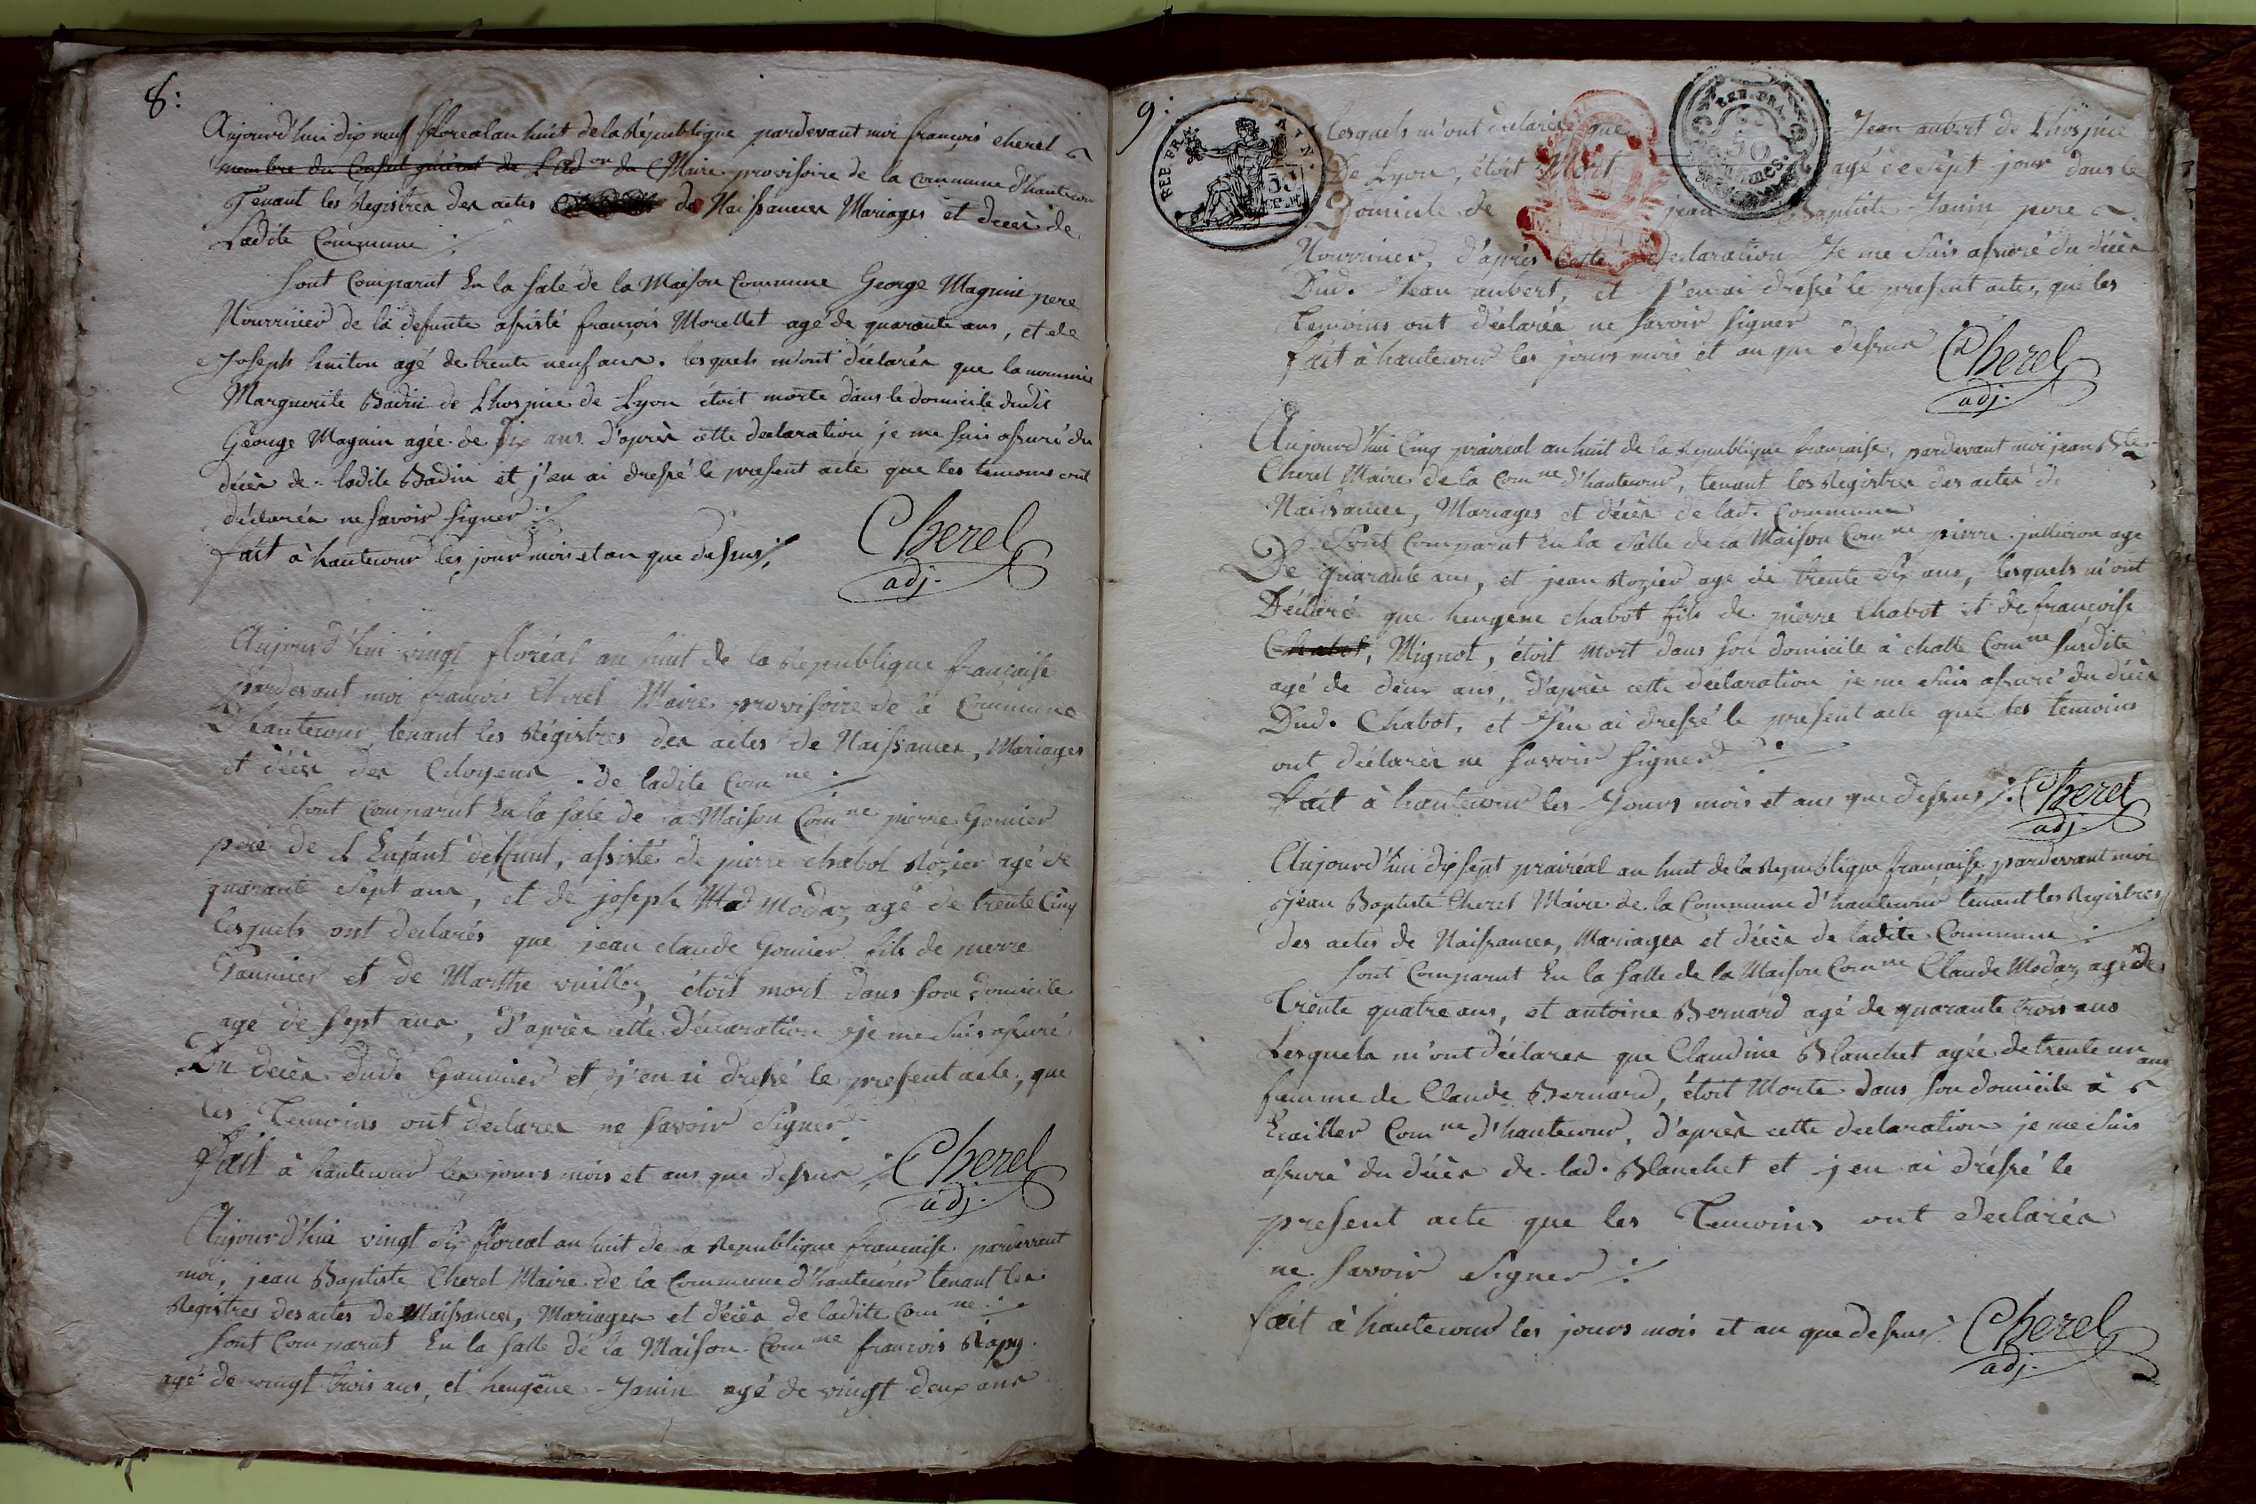 8:
Aujourd'hui dix neuf floreal an huit de la République pardevant moi françois cherel
membre du Conseil général de L'ad^on de Maire provisoire de la commune d'hautecour
Tenant les Registres des actes de Naissances Mariages et décès de
Ladite Commune
Sont Comparut En la Sale de la Maison Commune George Magnin pere
Nourricier de la defunte assisté françois Morellet agé de quarante ans, et de
Joseph agé de trente neuf ans. lesquels m'ont déclarés que la nommée
Marguerite Badin de Lhospice de Lyon étoit morte dans le domicile dudit
George Magnin agée de Six ans d'après cette declaration je me suis assuré du
décès de ladite Badin et j'en ai dressé le present acte que les temoins ont
déclarés ne savoir signer
fait à hautecour les jour mois et an que dessus
Cherel
adj.
Aujourd'hui vingt floréal an huit de la République française
pardevant moi françois Cherel Maire provisoire de la Commune
D'hautecour, tenant les Régistres des actes de Naissances, Mariages
et décès des Citoyens de ladite Com^ne
Sont Comparut En la Sale de la Maison Com^ne pierre Gomier
pere de L'Enfant deffunt, assisté de pierre chabol Rozier agé de
quarante Sept ans, et de joseph Mod Modaz agé de trente Cinq
lesquels ont declarés que jean claude Gomier fils de pierre
Gaumier et de Marthe vuilloz, étoit mort dans son domicile
agé de Sept ans, D'après cette Déclaration je me suis assuré
Du décès dudt Gaumier et j'en ai dressé le present acte, que
les Temoins ont declarés ne savoir Signer
fait à hautecour les jours mois et ans que dessus
Cherel
adj.
Aujourd'hui vingt Six floreal an huit de la Republique française pardevant
moi, jean Baptiste Cherel Maire de la Commune d'hautecour tenant les
Registres des actes de Naissances, Mariages et décès de ladite Com^ne
Sont Comparut En la Salle de la Maison Com^ne françois Rapy
agé de vingt trois ans, et heugene Janin agé de vingt deux ans
9:
REP. FRA.
50
REP. FRA.
50
CENTIMES.
Lesquels m'ont declarés que Jean aubert de Lhospice
De Lyon, étoit Mort agé de Sept jour dans le
Domicile de jean Baptiste Janin pere
Nourricier, d'après Cette declaration Je me suis assuré du décès
Dud. Jean aubert, et J'en ai dressé le present acte, que les
Temoins ont déclarés ne Savoir Signer
fait à hautecour les jours mois et an que dessus
Cherel
adj.
Aujourd'hui Cinq prairéal an huit de la République française, pardevant moi jean B^te
Cherel Maire de la Com^ne d'hautecour, tenant les Registres des actes de
Naissances, Mariages et décès de lad. Commune
Sont Comparut En la Salle de la Maison Com^ne pierre jullieron agé
De quarante ans, et jean Rozier agé de trente Six ans, lesquels m'ont
Déclaré que heugene chabot fils de pierre Chabot et de françoise
Chabot, Mignot, étoit Mort dans son domicile à challe Com^ne Susdite
agé de deux ans, D'après cette declaration je me suis assuré du décès
Dud. Chabot, et J'en ai dressé le present acte que les temoins
ont déclarés ne savoir signer
fait à hautecour les Jours mois et ans que dessus
Cherel
adj.
Aujourd'hui dix sept prairéal an huit de la République française pardevant moi
jean Baptiste Cherel Maire de la Commune d'hautecour tenant les Registres
des actes de Naissances, Mariages et décès de ladite Commune
Sont Comparut En la Salle de la Maison Com^ne Claude Modaz agé de
Trente quatre ans, et antoine Bernard agé de quarante trois ans
Lesquels m'ont déclarés que Claudine Blanchet agée de trente un ans
femme de Claude Bernard, étoit Morte dans son domicile à
Com^ne d'hautecour, d'après cette declaration je me suis
assuré du décès de lad. Blanchet et j'en ai dréssé le
present acte que les Temoins ont declarés
ne Savoir Signer
fait à hautecour les jours mois et an que dessus
Cherel
adj.